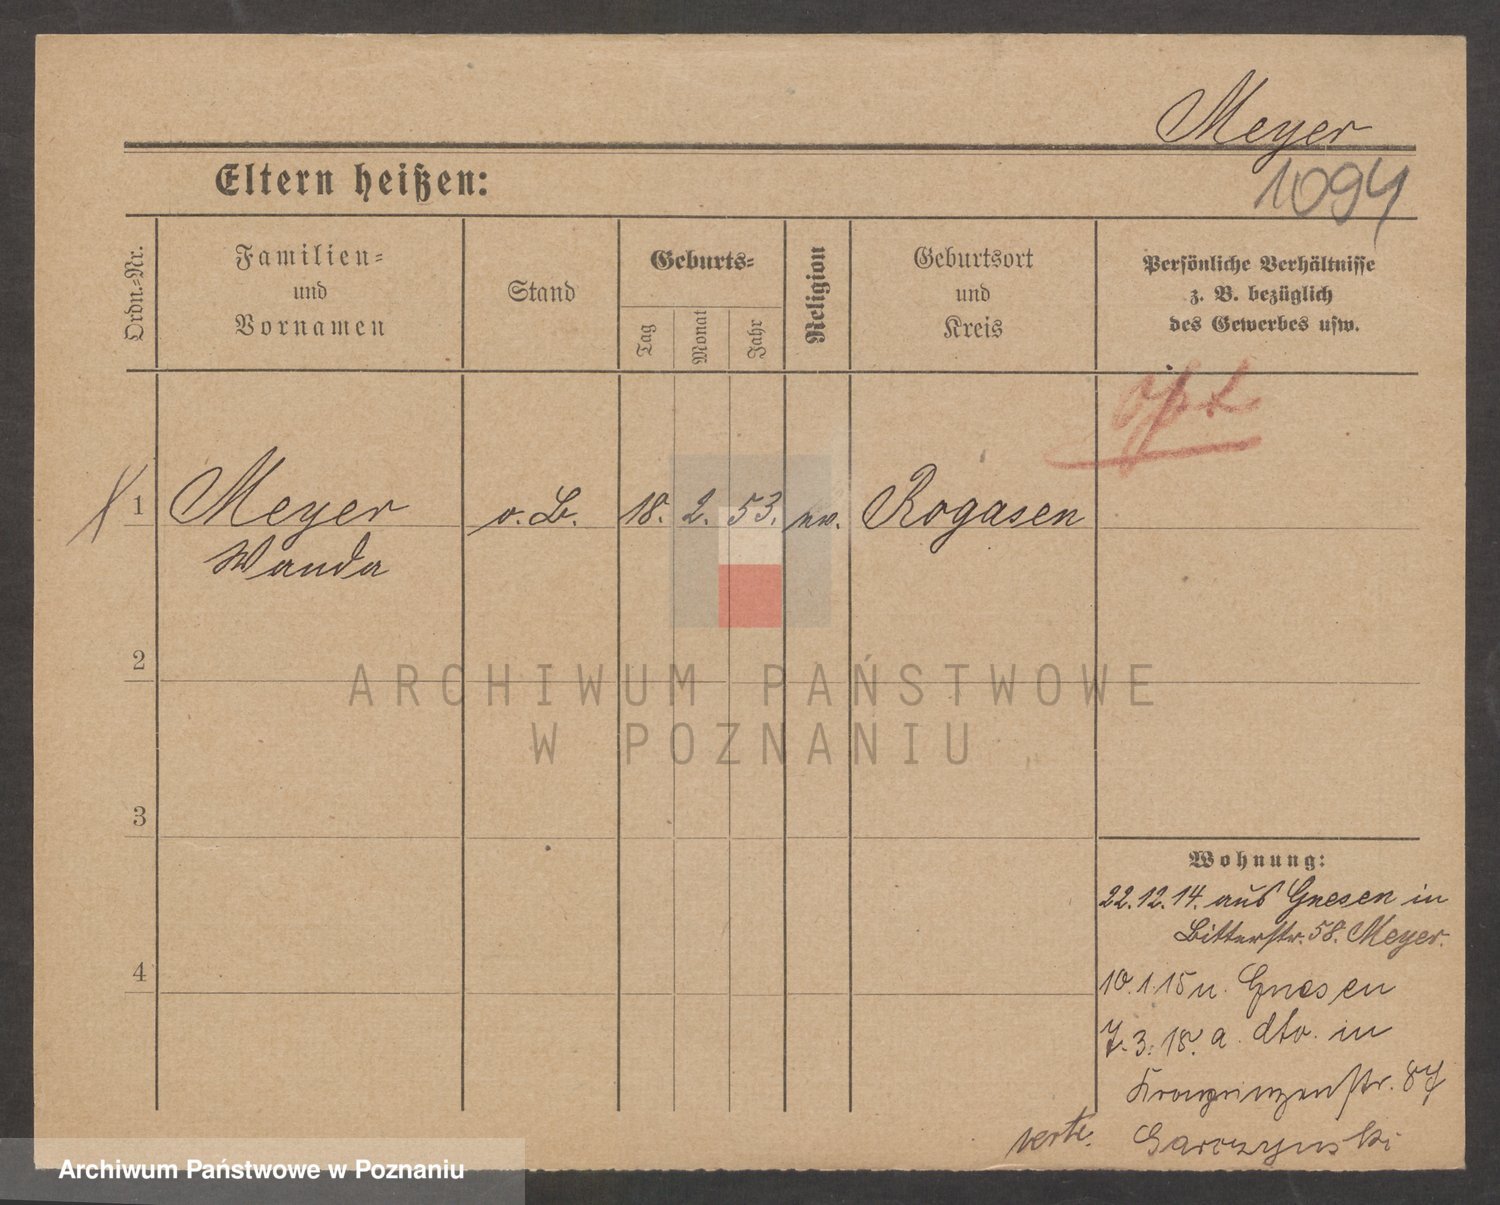 Meyer
1094
Eltern heißen:
Ordn.=Nr.
Familien=
und
Vornamen
Stand
Geburts=
Tag
Monat
Jahr
Religion
Geburtsort
und
Kreis
Persönliche Verhältnisse
z. B. bezüglich
des Gewerbes usw.
1 Meyer o. B. 18. 2. 53. ev. Rogasen
Wanda
2
3
4
ARCHIWUM PAŃSTWOWE
W POZNANIU
Wohnung:
22.12.14. aus Gnesen in
Bitterstr. 58. Meyer.
10.1.15 n. Gnesen
7.3.18. a. dto. in
Kronprinzenstr. 87
verte. Garczynski
Archiwum Państwowe w Poznaniu